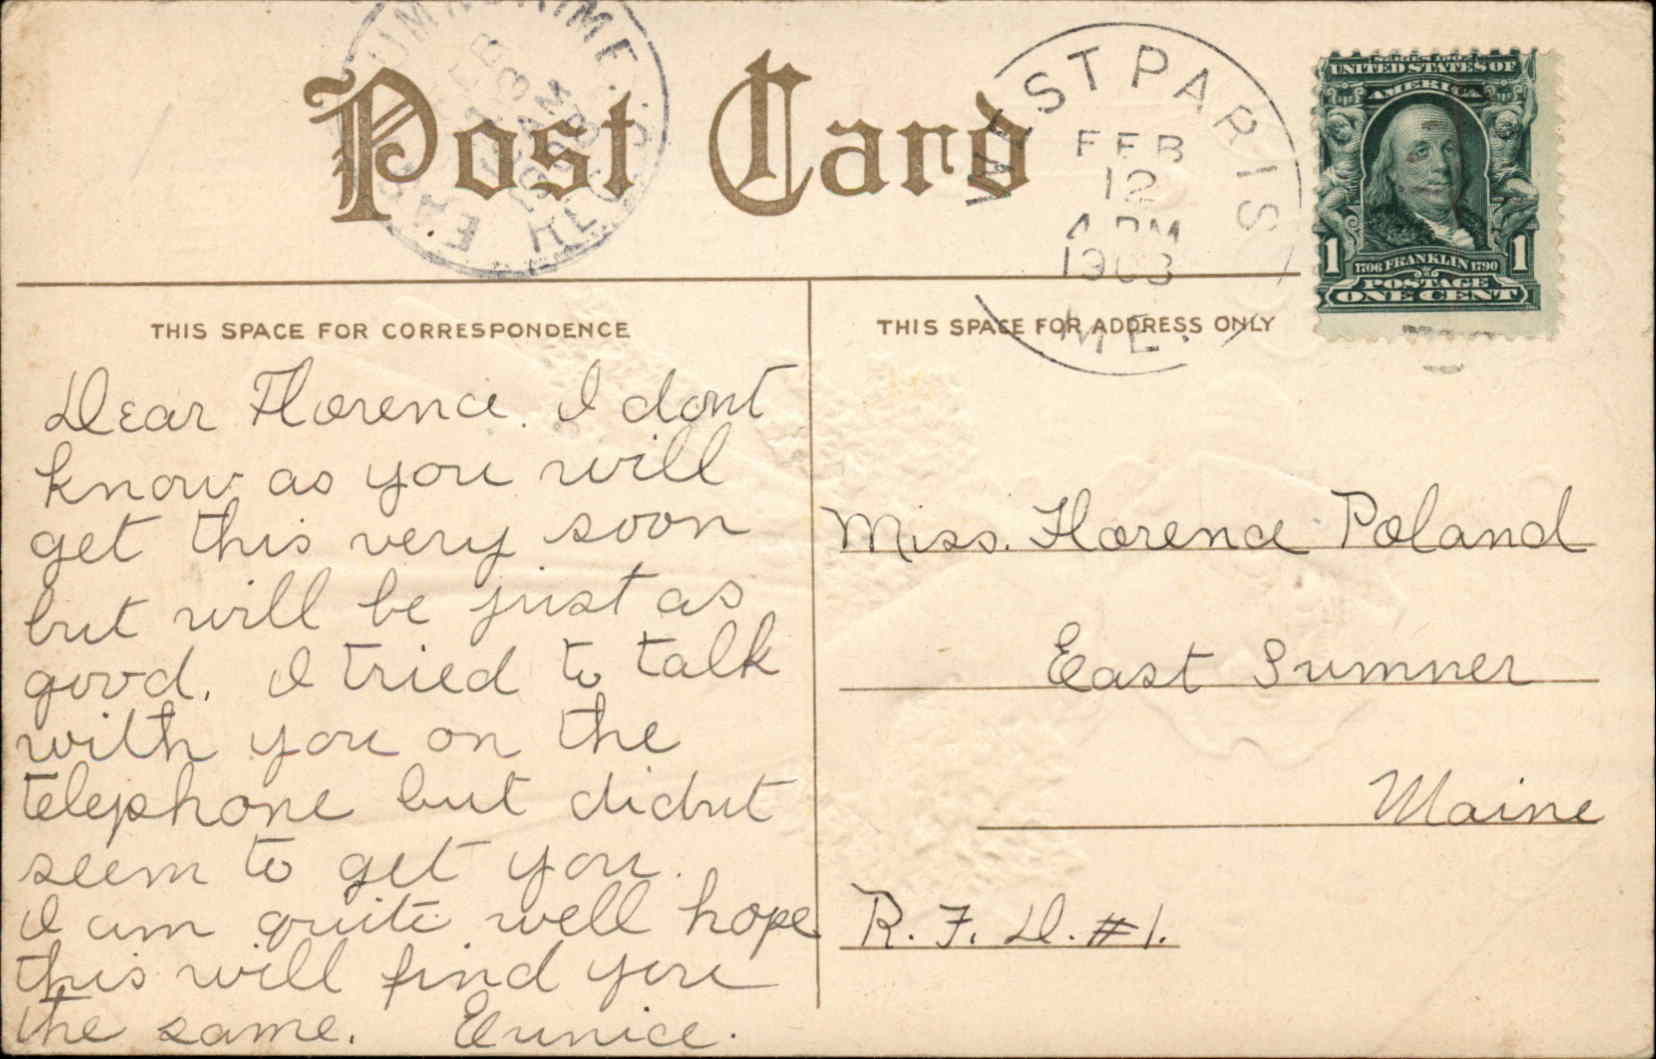 Post Card
WEST PARIS
FEB
12
4 PM
1908
ME.
UNITED STATES OF
AMERICA
1 1706 FRANKLIN 1790 1
POSTAGE
ONE CENT
THIS SPACE FOR CORRESPONDENCE
THIS SPACE FOR ADDRESS ONLY
Dear Florence. I dont
know as you will
get this very soon
but will be just as
good. I tried to talk
with you on the
telephone but didnt
seem to get you.
I am quite well hope
this will find you
the same. Eunice.
Miss. Florence Poland
East Sumner
Maine
R. F. D. #1.